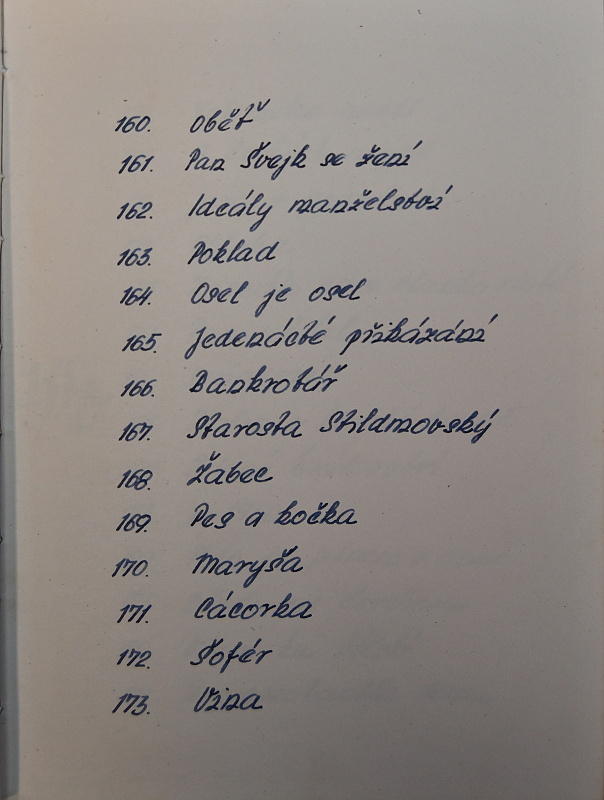 160. Oběť
161. Pan Švejk se žení
162. Ideály manželství
163. Poklad
164. Osel je osel
165. Jedenácté přikázání
166. Bankrotář
167. Starosta Stildmovský
168. Žabec
169. Pes a kočka
170. Maryša
171. Cácorka
172. Šofér
173. Vina